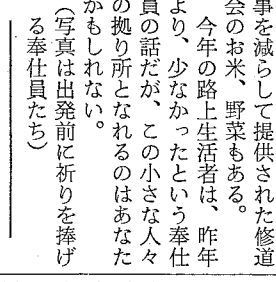 事を減らして提供された修道
会のお米、野菜もある。
今年の路上生活者は、昨年
より、少なかったという奉仕
員の話だが、この小さな人々
の拠り所となれるのはあなた
かもしれない。
(写真は出発前に祈りを捧げ
る奉仕員たち)